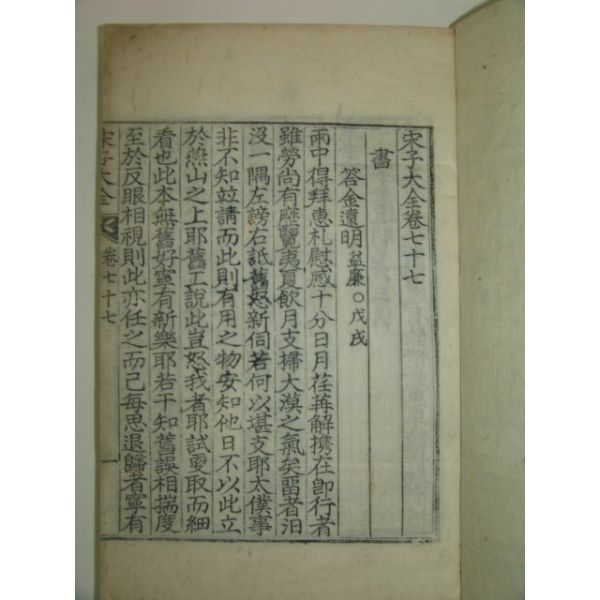 宋子大全卷七十七
書
答金遠明 益廉○戊戌
雨中得拜惠札慰感十分日月荏苒解携在卽行者
雖勞尚有歷覽夷夏飮月支掃大漠之氣矣留者汨
沒一隅左謗右詆舊怒新伺若何以堪支耶太僕事
非不知竝請而此則有用之物安知他日不以此立
於燕山之上耶舊工說此豈怒我者耶試更取而細
看也此本無舊好寧有新樂耶若干知舊誤相揣度
至於反眼相視則此亦任之而已每思退歸者寧有
宋子大全 卷七十七 一